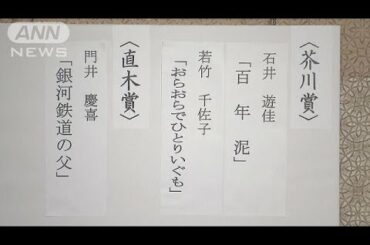 ANN
NEWS
〈芥川賞〉
石井 遊佳
「百年泥」
若竹 千佐子
「おらおらでひとりいぐも」
〈直木賞〉
門井 慶喜
「銀河鉄道の父」